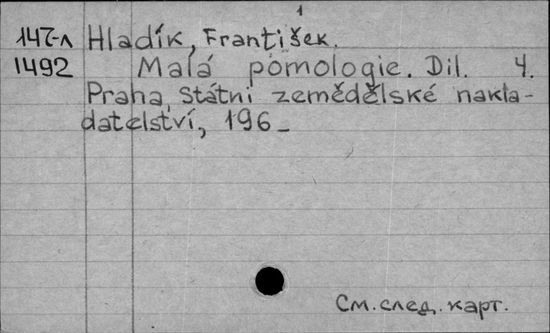 1
147-л Hladík, František.
1492 Malá pomologie. Dil. 4.
Praha, Státni zemědělské nakla-
datelství, 196_
См. след. карт.